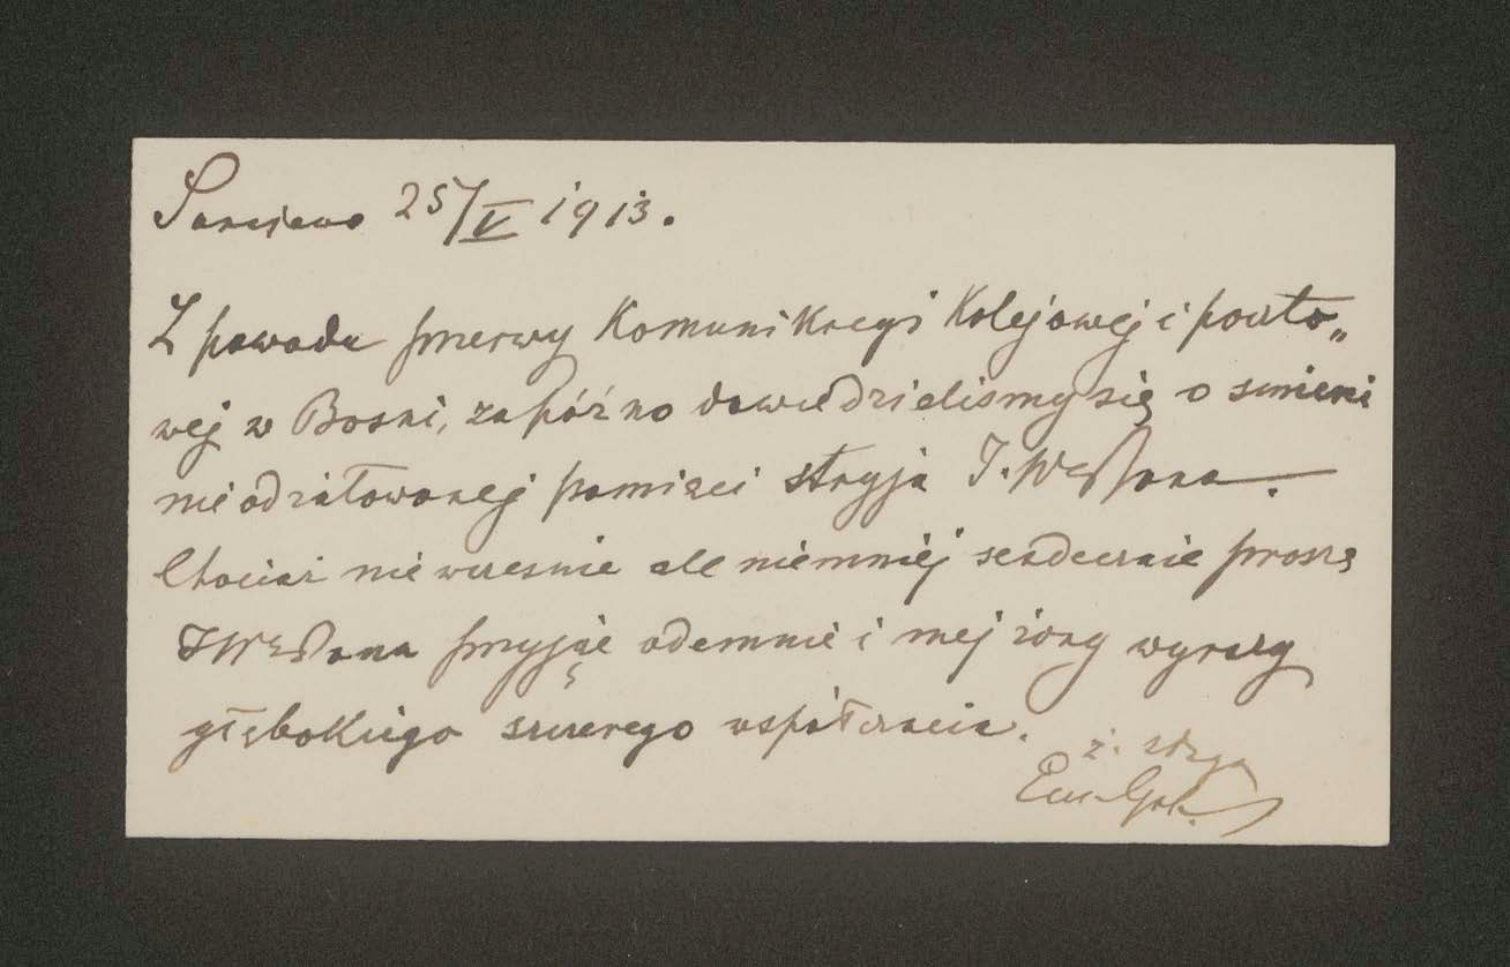 Sarajewo 25/V 1913.
Z powodu przerwy Komunikacyi Kolejowej i poczto„
wej w Bosni, za późno dowiedzielismy się o smierci
nieodżałowanej pamięci stryja J. W. Pana.
Chociaż nie wczesnie ale niemniej serdecznie proszę
JWPana przyjąć odemnie i mej żony wyrazy
głębokiego szczerego współczucia.